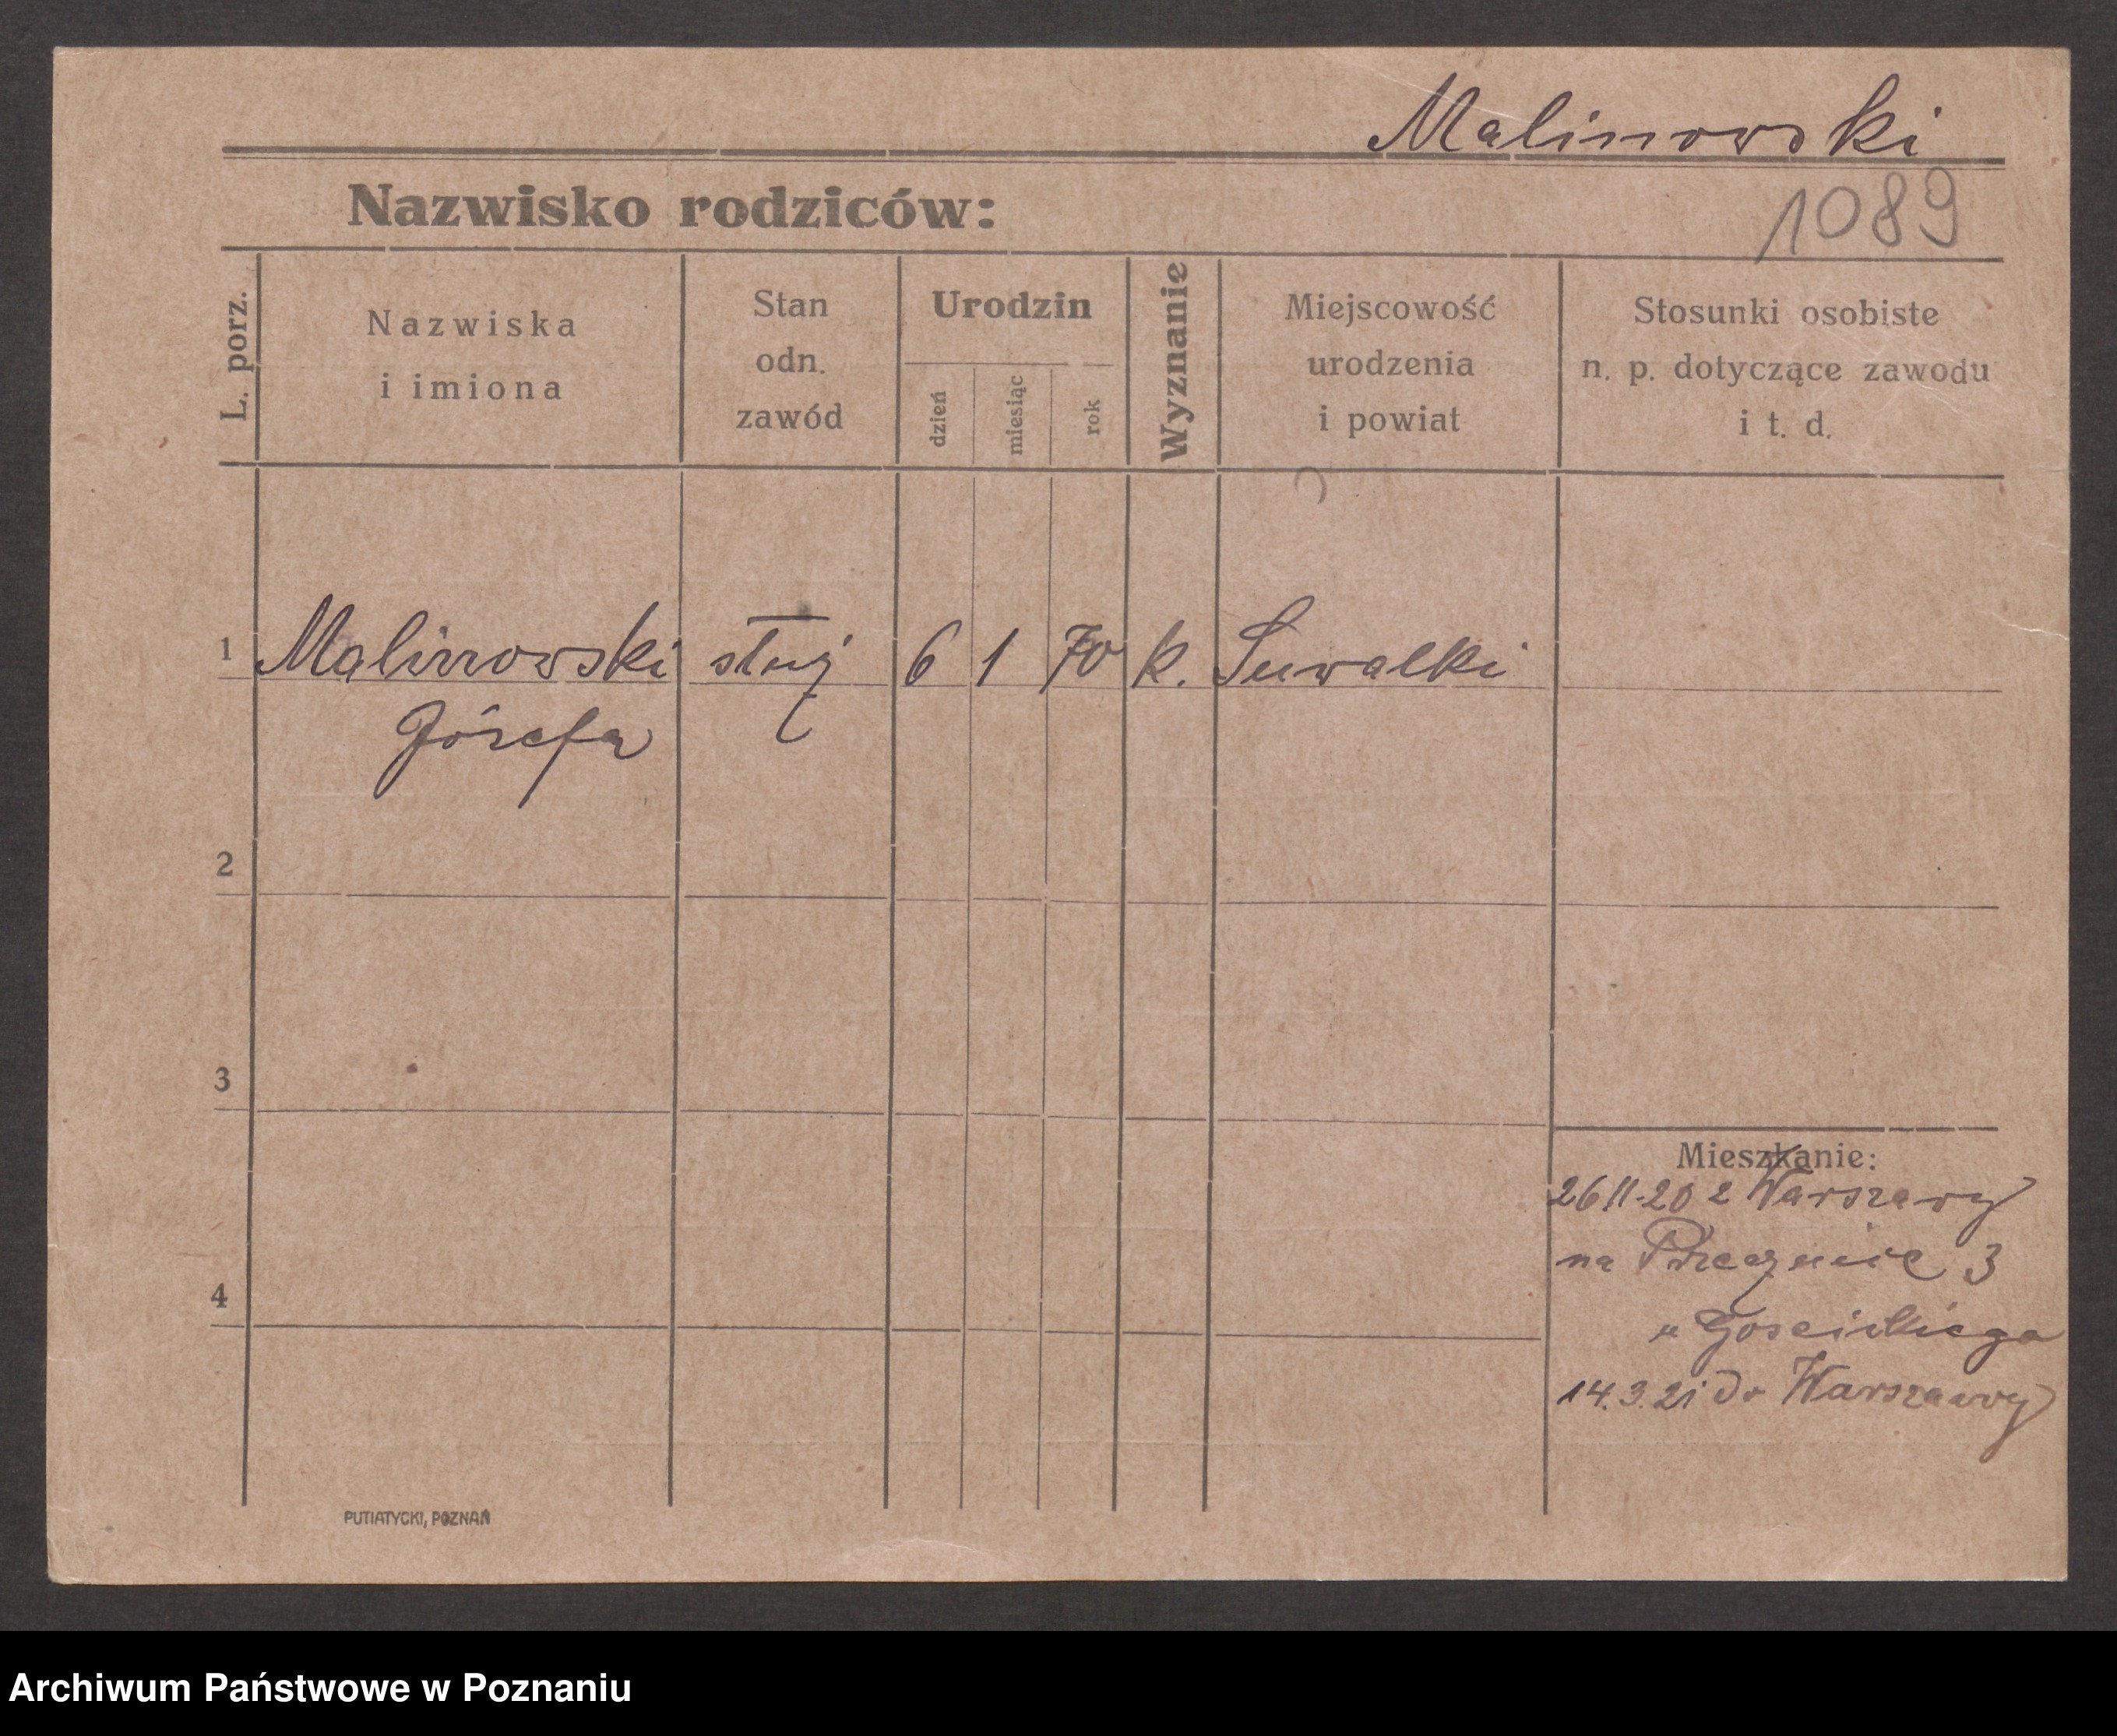 Malinowski
1089
Nazwisko rodziców:
L. porz.
Nazwiska
i imiona
Stan
odn.
zawód
Urodzin
dzień
miesiąc
rok
Wyznanie
Miejscowość
urodzenia
i powiat
Stosunki osobiste
n. p. dotyczące zawodu
i t. d.
1 Malinowski służ 6 1 70 k. Suwalki
Józefa
2
3
4
Mieszkanie:
26 11.20 z Warszawy
na 3
u
14.3.21 do Warszawy
PUTIATYCKI, POZNAŃ
Archiwum Państwowe w Poznaniu